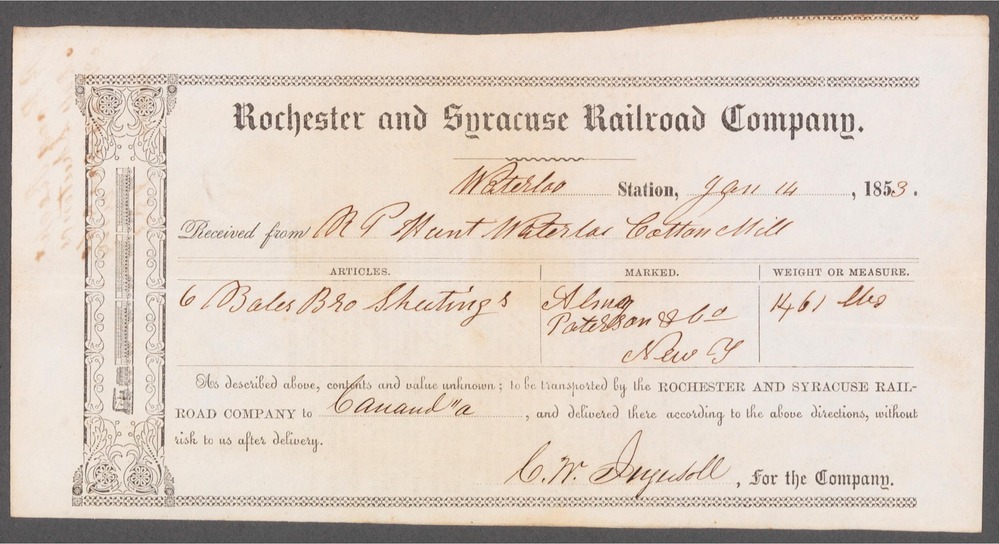 Rochester and Syracuse Railroad Company.
Waterloo Station, Jan 14, 1853.
Received from R P Hunt Waterloo Cotton Mill
ARTICLES. MARKED. WEIGHT OR MEASURE.
6 Bales Bro Sheetings 1461 lbs
Paterson & Co
New Y
As described above, contents and value unknown; to be transported by the ROCHESTER AND SYRACUSE RAIL-
ROAD COMPANY to Canand"a, and delivered there according to the above directions, without
risk to us after delivery.
C. W. Ingersoll, For the Company.